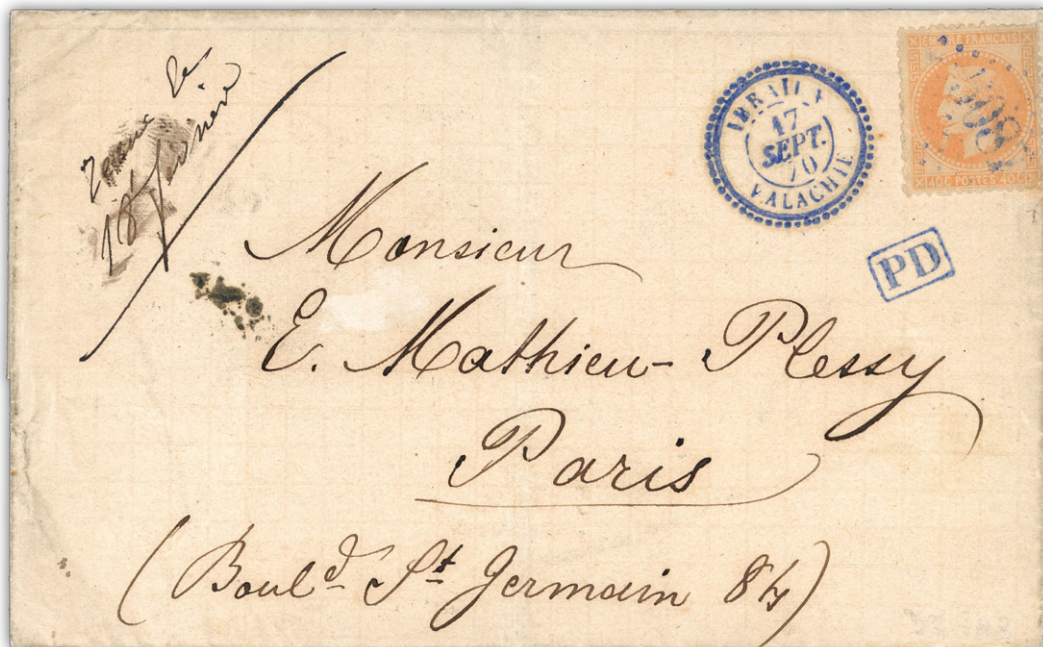 18 janvier
IBRAILA
17
SEPT.
70
VALACHIE
EMPIRE FRANÇAIS
40 C POSTES 40 C
5081
PD
Monsieur
E. Mathieu-Plessy
Paris
(Boul.d St Germain 84)